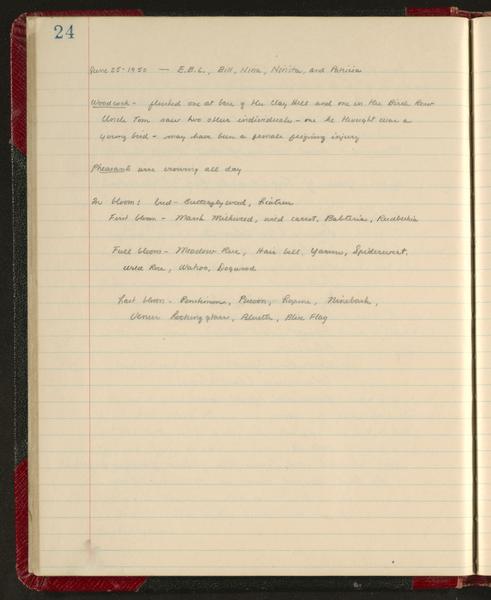 24
June 25-1950 — E.B.L., Bill, Nina, Ninita, and Patricia
Woodcock - flushed one at base of the Clay Hill and one in the Birch Row
Uncle Tom saw two other individuals - one he thought was a
young bird - may have been a female feigning injury
Pheasants were crowing all day
In bloom: bud - Butterflyweed, Liatris
First bloom - Marsh Milkweed, wild carrot, Baptisia, Rudbeckia
Full bloom - Meadow Rue, Hair bell, Yarrow, Spiderwort,
Wild Rose, Wahoo, Dogwood
Last bloom - Penstemon, Puccoon, Lupine, Ninebark,
Venus Looking glass, Bluets, Blue Flag